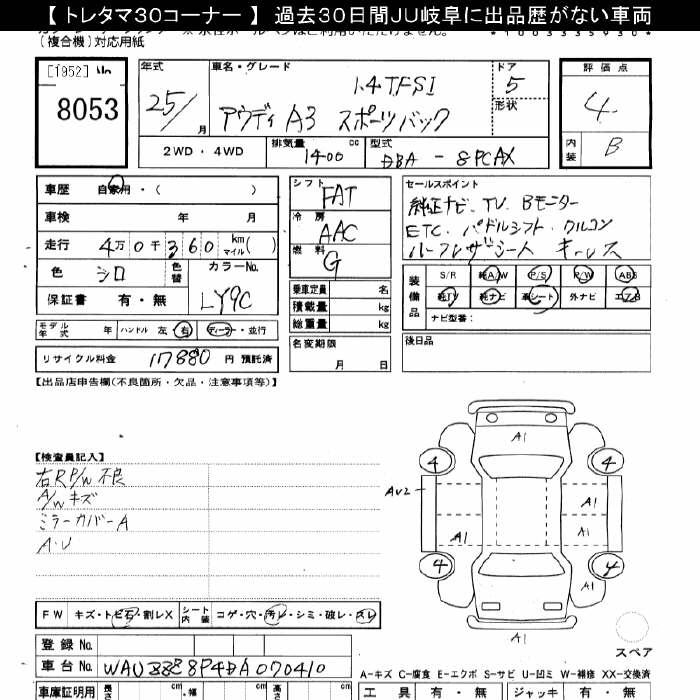 【 トレタマ３０コーナー 】 過去３０日間ＪＵ岐阜に出品歴がない車両
(複合機)対応用紙
*1003335930*
[1952]
8053
年式 25/ 月
車名・グレード 1.4TFSI
アウディ A3 スポーツバック
ドア 5
形状
評価点 4
内装 B
2WD ・ 4WD
排気量 1400 cc
型式 DBA - 8PCAX
車歴 自家用・( )
車検 年 月
走行 4万0千360 km マイル( )
色 シロ 色替
カラーNo. LY9C
保証書 有・無
モデル年式 年 ハンドル 左・右 ディーラー・並行
リサイクル料金 17880 円 預託済
シフト FAT
冷房 AAC
燃料 G
乗車定員 名
積載量 kg
総重量 kg
名変期限
月 日
セールスポイント
純正ナビ、TV、Bモニター
ETC、パドルシフト、クルコン
ハーフレザーシート キーレス
装備品
S/R 純A/W P/S P/W ABS
純TV 純ナビ 革シート 外ナビ エアB
ナビ型番:
後日品
【出品店申告欄(不良箇所・欠品・注意事項等)】
【検査員記入】
右R P/W 不良
A/W キズ
ミラーカバーA
A・U
A1
4 4
AU2
A1
A1
A1
A1
4 4
A1
A1
スペア
FW キズ・トビ石・割レX シート内装 コゲ・穴・汚レ・シミ・破レ・スレ
登録 No.
車台 No. WAUZZZ8P4DA070410
A−キズ C−腐食 E−エクボ S−サビ U−凹ミ W−補修 XX−交換済
車庫証明用 長さ cm 幅 cm 高さ cm
工具 有・無 ジャッキ 有・無